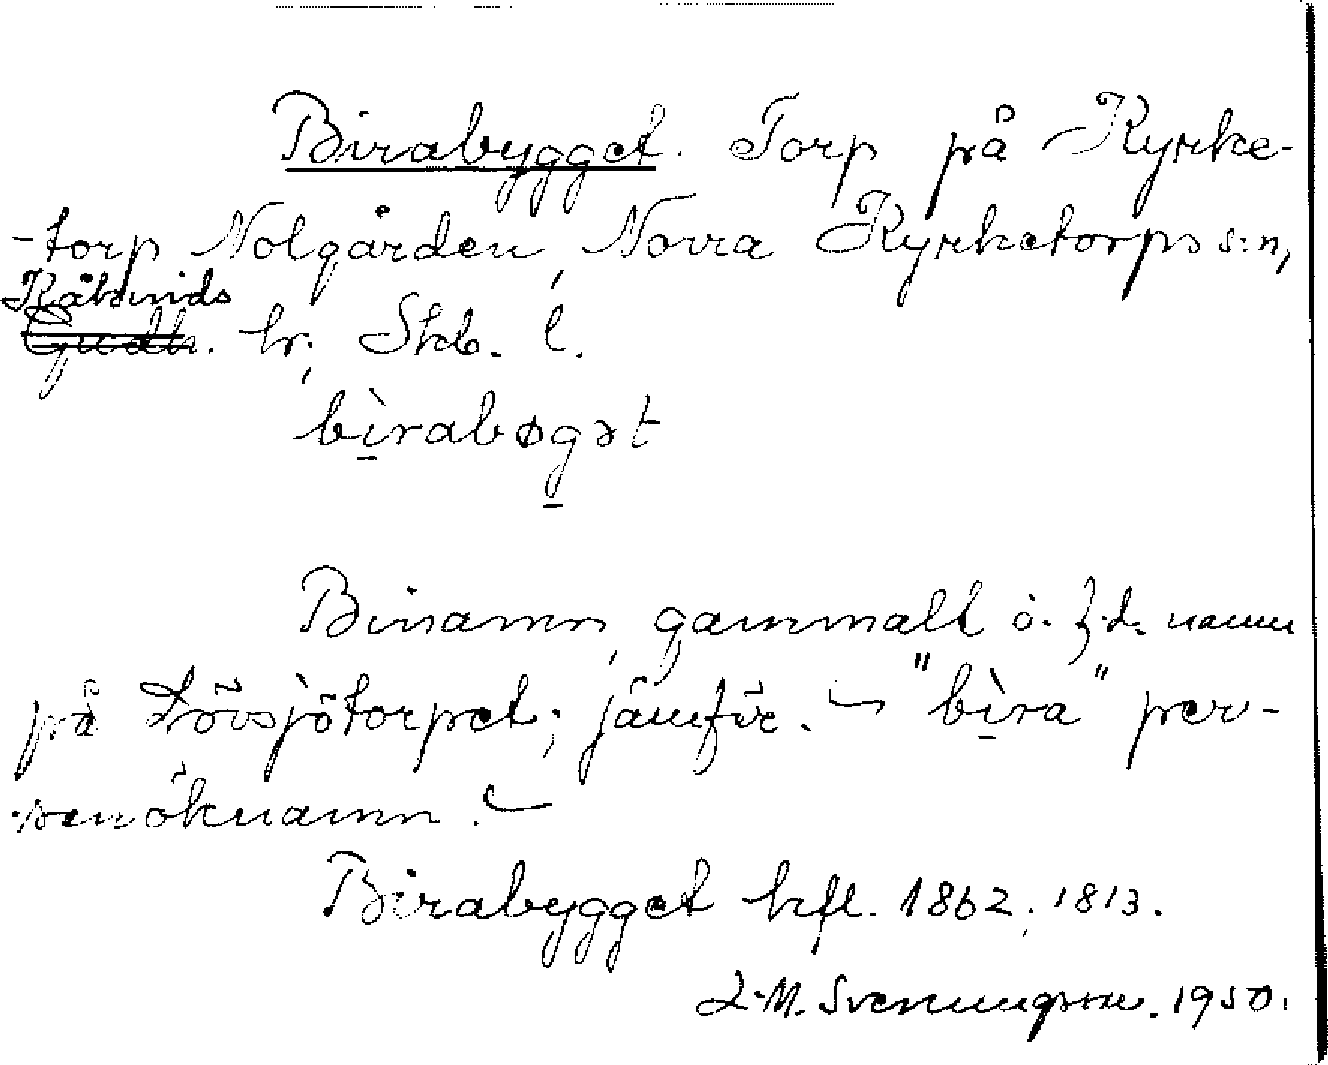 Birabygget. Torp på Kyrke-
-torp Nolgården, Norra Kyrketorps s:n,
Kåkinds
Gudh. hr; Skb. l.
bìrabøgət
Binamn, gammalt o. f.d. namn
på Lövsjötorpet; jämför. "bìra" per-
sonöknamn.
Birabygget hfl. 1862; 1813.
L.M. Svenungsson. 1950.